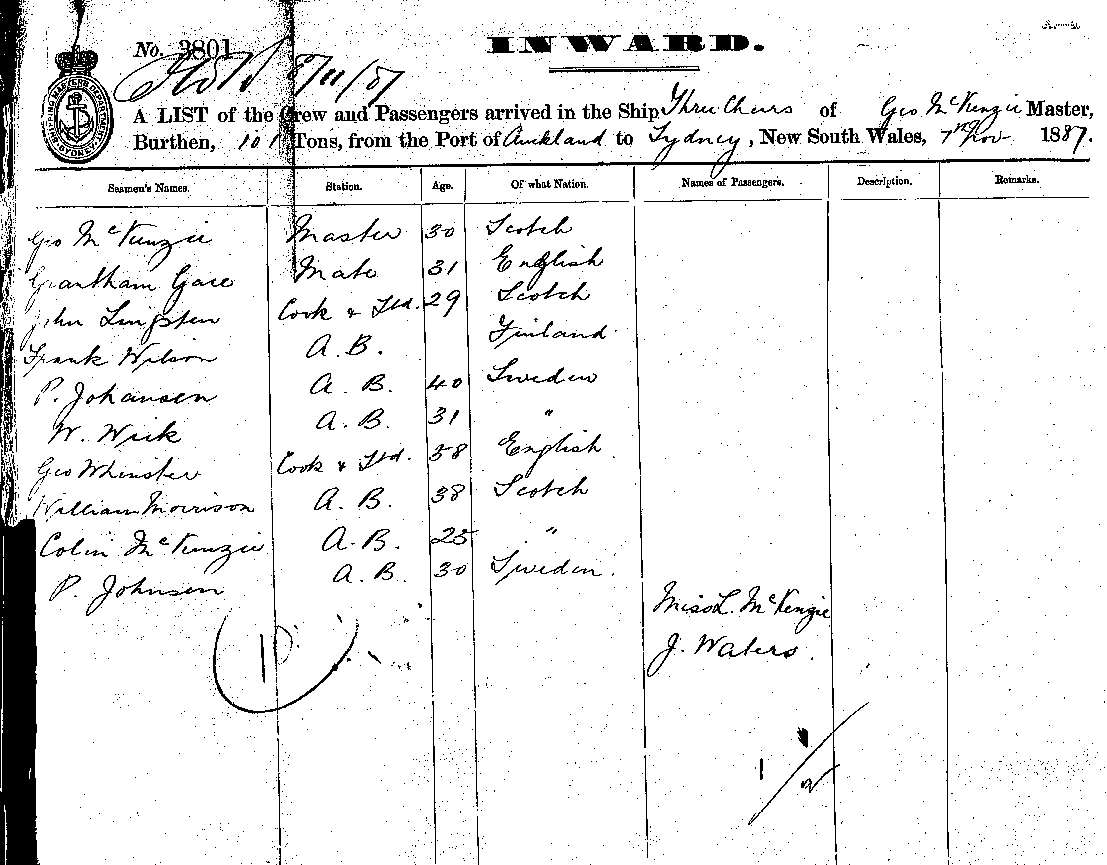 No. 3801
INWARD.
8/11/87
A LIST of the Crew and Passengers arrived in the Ship Three Cheers of Geo McKenzie Master,
Burthen, 101 Tons, from the Port of Auckland to Sydney, New South Wales, 7th Nov 1887.
Seamen's Names. Station. Age. Of what Nation. Names of Passengers. Description. Remarks.
Geo McKenzie Master 30 Scotch
Grantham Gace Mate 31 English
John Cook & Std. 29 Scotch
Frank Wilson A.B. Finland
P. Johansen A.B. 40 Sweden
W. Wick A.B. 31 "
Geo Whinster Cook & Std. 58 English
William Morrison A.B. 38 Scotch
Colin McKenzie A.B. 25 "
P. Johnsen A.B. 30 Sweden.
Miss L. McKenzie
J. Waters.
10
1/2